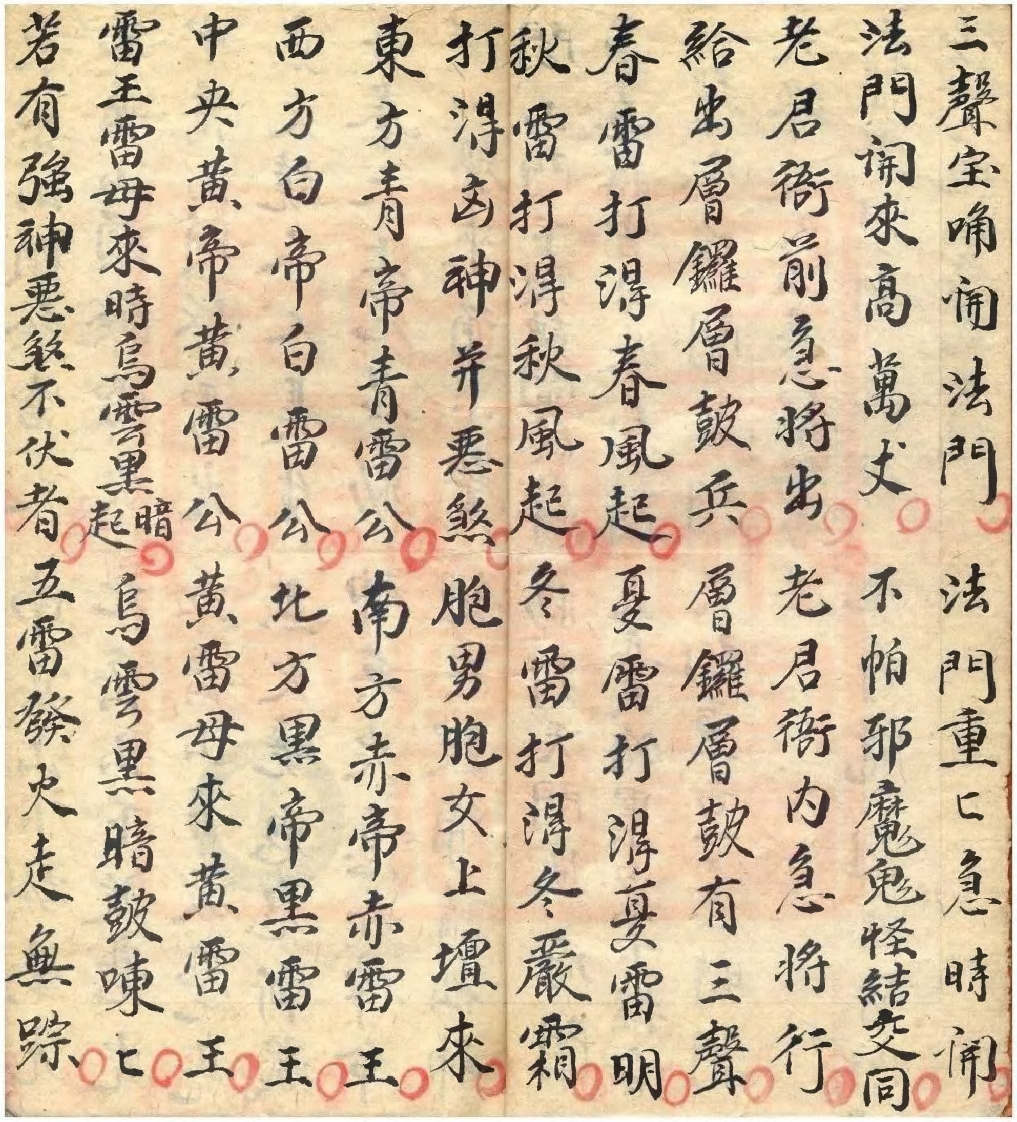 三聲宝角開法門法門重匕急時開
法門開來高萬丈不怕邪魔鬼怪結交同
老君衙前急將出老君衙内急將行
給出層鑼層鼓兵層鑼層鼓有三聲
春雷打得春風起夏雷打得夏雷明
秋雷打得秋風起冬雷打得冬嚴霜
打得凶神并惡煞胞男胞女上壇來
東方青帝青雷公南方赤帝赤雷王
西方白帝白雷公北方黒帝黒雷王
中央黃帝黃雷公黃雷母來黃雷王
雷王雷母來時烏雲黒暗起烏雲黒暗鼓㖦匕
若有強神惡煞不伏者五雷發火走無踪